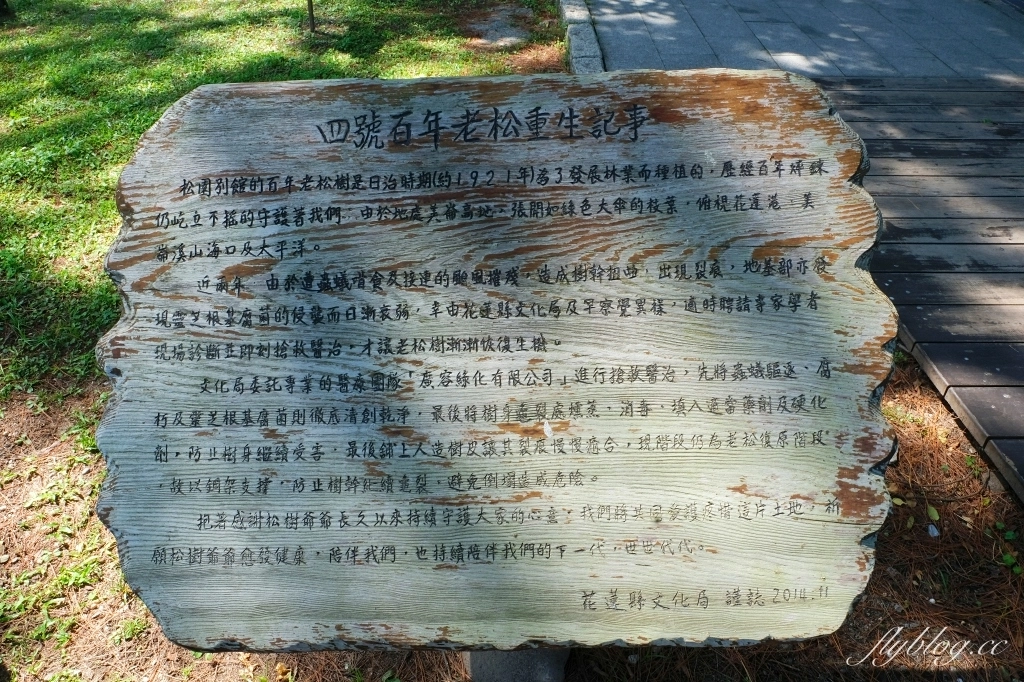 四號百年老松重生記事
松園別館的百年老松樹是日治時期(約1921年)為了發展林業而種植的，歷經百年焠鍊
仍屹立不搖的守護著我們，由於地處美崙高地，張開如綠色大傘的枝葉，俯視花蓮港、美
崙溪山海口及太平洋。
近兩年，由於遭蟲蟻啃食及接連的颱風摧殘，造成樹幹扭曲，出現裂痕，地基部亦發
現靈芝根基腐菌的侵襲而日漸衰弱，幸由花蓮縣文化局及早察覺異樣，適時聘請專家學者
現場診斷並即刻搶救醫治，才讓老松樹漸漸恢復生機。
文化局委託專業的醫療團隊「廣容綠化有限公司」進行搶救醫治，先將蟲蟻驅逐、腐
朽及靈芝根基腐菌則徹底清創乾淨，最後將樹身龜裂處燻蒸、消毒、填入適當藥劑及硬化
劑，防止樹身繼續受害，最後鋪上人造樹皮讓其裂痕慢慢癒合，現階段仍為老松復原階段
，故以鋼架支撐，防止樹幹繼續龜裂，避免倒塌造成危險。
抱著感謝松樹爺爺長久以來持續守護大家的心意，我們將共同愛護疼惜這片土地，祈
願松樹爺爺愈發健康，陪伴我們，也持續陪伴我們的下一代，世世代代。
花蓮縣文化局 謹誌 2014.11
flyblog.cc